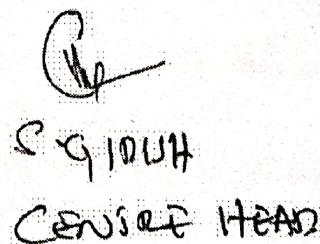 S GIDWH
CENTRE HEAD